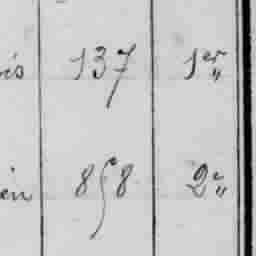 is 137 1er „
en 858 2e „